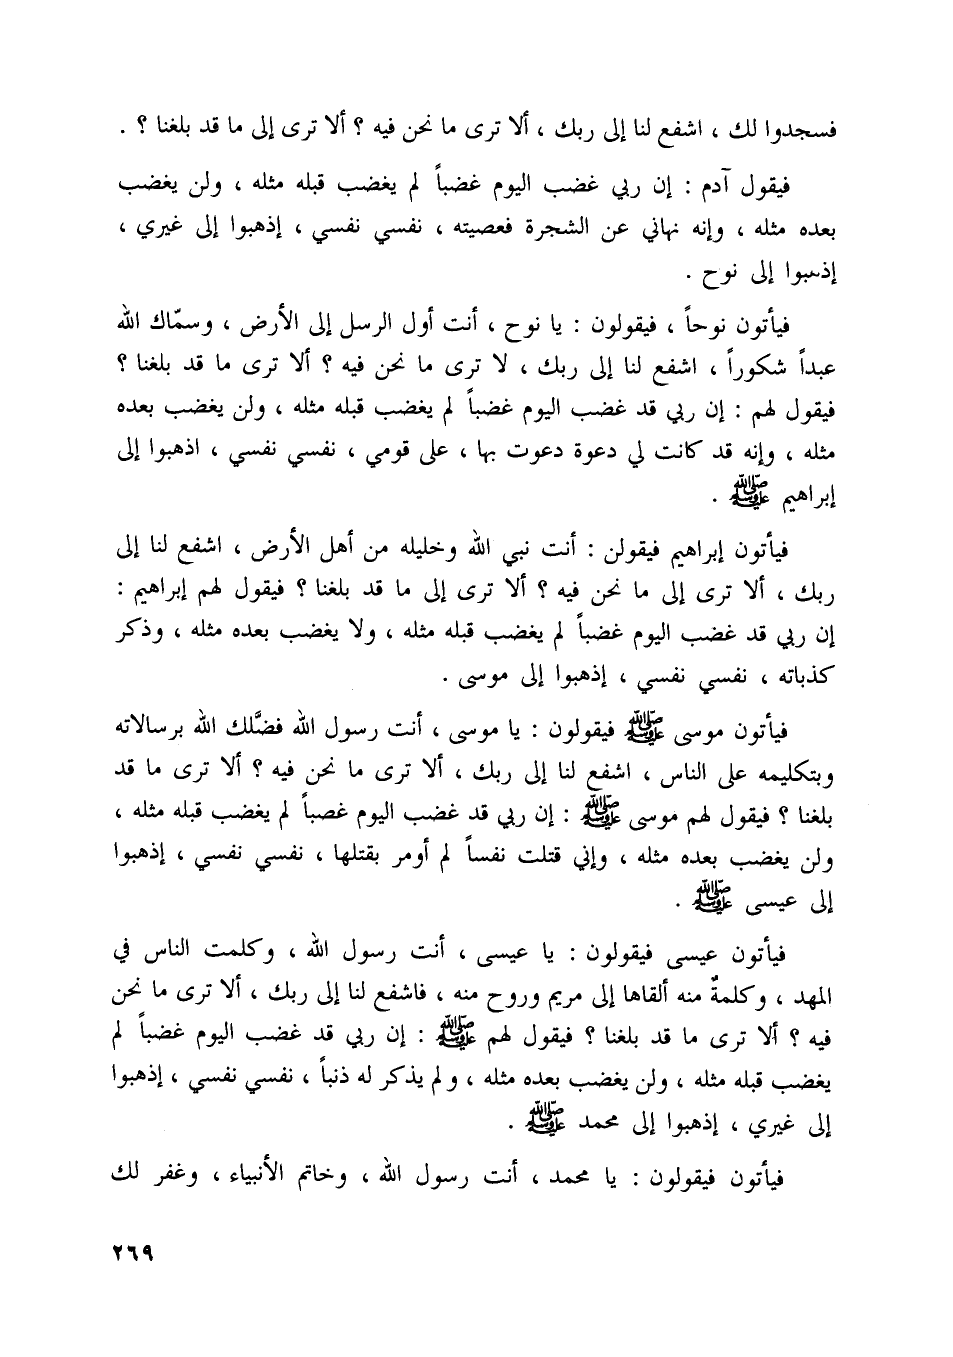 فسجدوا لك ، اشفع لنا إلى ربك ، ألا ترى ما نحن فيه ؟ ألا ترى إلى ما قد بلغنا ؟ .
فيقول آدم : إن ربي غضب اليوم غضباً لم يغضب قبله مثله ، ولن يغضب
بعده مثله ، وإنه نهاني عن الشجرة فعصيته ، نفسي نفسي ، إذهبوا إلى غيري ،
إذهبوا إلى نوح .
فيأتون نوحاً ، فيقولون : يا نوح ، أنت أول الرسل إلى الأرض ، وسمّاك الله
عبداً شكوراً ، اشفع لنا إلى ربك ، لا ترى ما نحن فيه ؟ ألا ترى ما قد بلغنا ؟
فيقول لهم : إن ربي قد غضب اليوم غضباً لم يغضب قبله مثله ، ولن يغضب بعده
مثله ، وإنه قد كانت لي دعوة دعوت بها ، على قومي ، نفسي نفسي ، اذهبوا إلى
إبراهيم ﷺ .
فيأتون إبراهيم فيقولن : أنت نبي الله وخليله من أهل الأرض ، اشفع لنا إلى
ربك ، ألا ترى إلى ما نحن فيه ؟ ألا ترى إلى ما قد بلغنا ؟ فيقول لهم إبراهيم :
إن ربي قد غضب اليوم غضباً لم يغضب قبله مثله ، ولا يغضب بعده مثله ، وذكر
كذباته ، نفسي نفسي ، إذهبوا إلى موسى .
فيأتون موسى ﷺ فيقولون : يا موسى ، أنت رسول الله فضَّلك الله برسالاته
وبتكليمه على الناس ، اشفع لنا إلى ربك ، ألا ترى ما نحن فيه ؟ ألا ترى ما قد
بلغنا ؟ فيقول لهم موسى ﷺ : إن ربي قد غضب اليوم غصباً لم يغضب قبله مثله ،
ولن يغضب بعده مثله ، وإني قتلت نفساً لم أومر بقتلها ، نفسي نفسي ، إذهبوا
إلى عيسى ﷺ .
فيأتون عيسى فيقولون : يا عيسى ، أنت رسول الله ، وكلمت الناس في
المهد ، وكلمةٌ منه ألقاها إلى مريم وروح منه ، فاشفع لنا إلى ربك ، ألا ترى ما نحن
فيه ؟ ألا ترى ما قد بلغنا ؟ فيقول لهم ﷺ : إن ربي قد غضب اليوم غضباً لم
يغضب قبله مثله ، ولن يغضب بعده مثله ، ولم يذكر له ذنباً ، نفسي نفسي ، إذهبوا
إلى غيري ، إذهبوا إلى محمد ﷺ .
فيأتون فيقولون : يا محمد ، أنت رسول الله ، وخاتم الأنبياء ، وغفر لك
٢٦٩